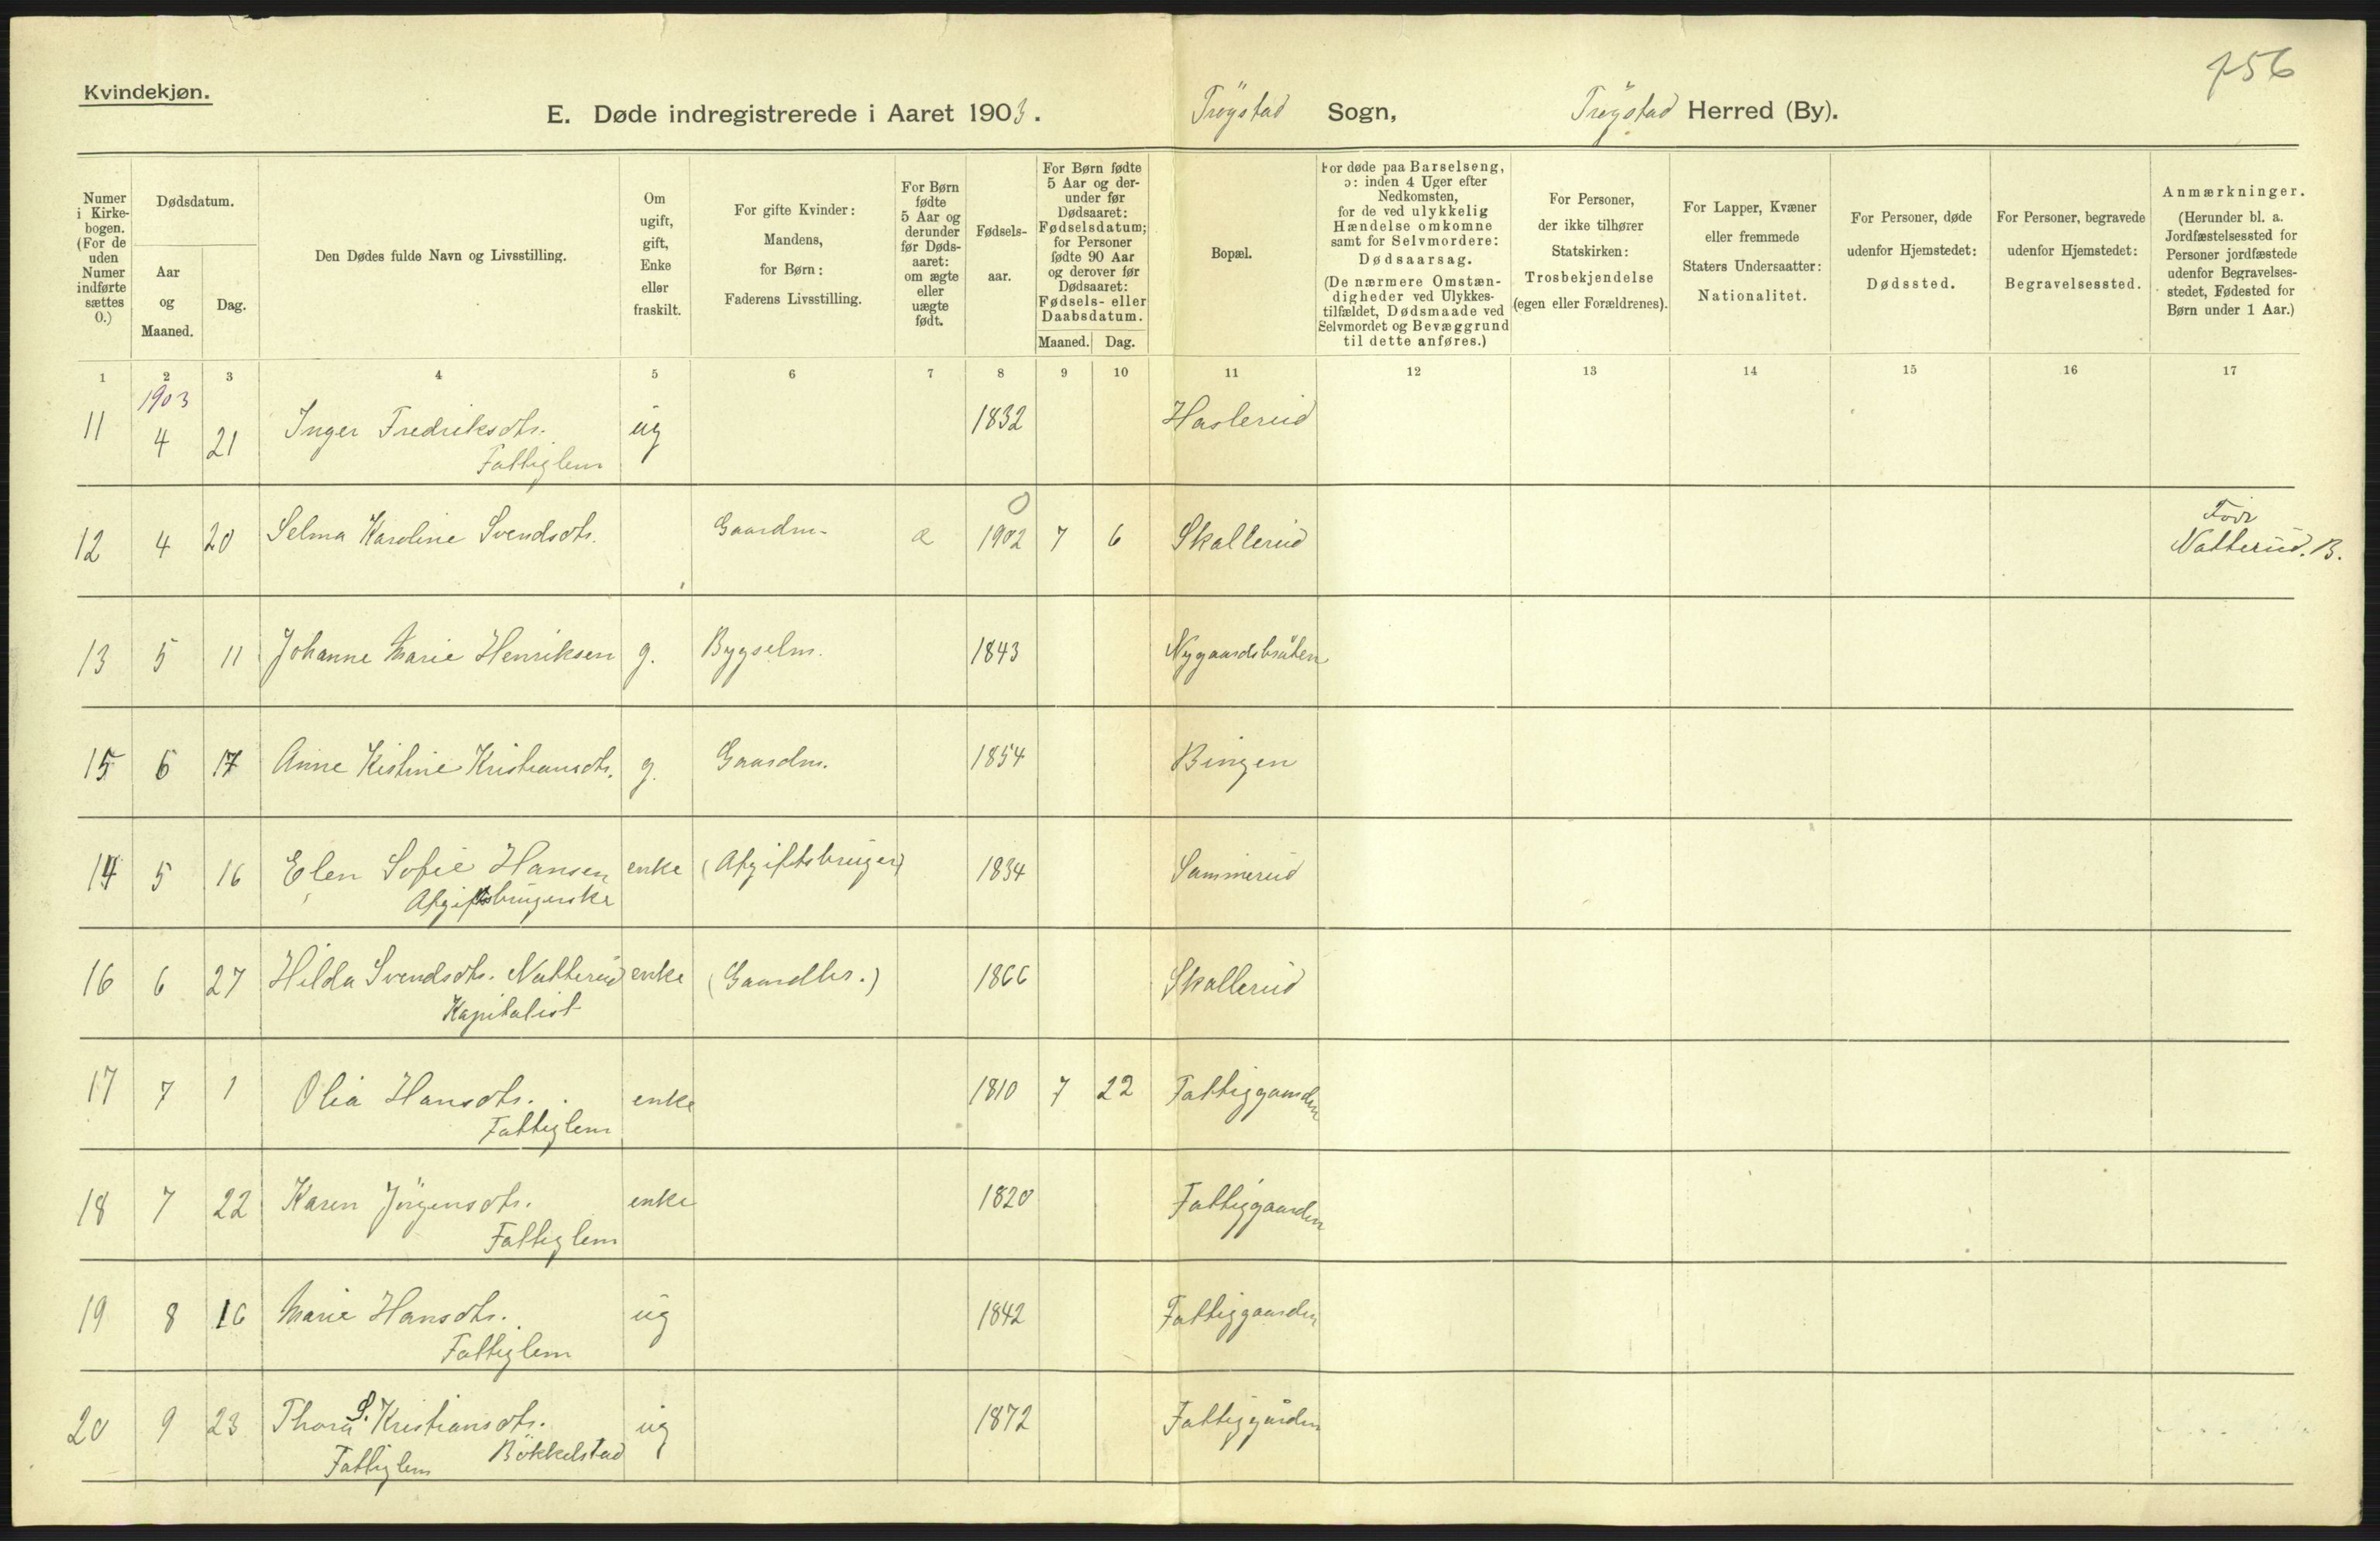 756
Kvindekjøn.
E. Døde indregistrerede i Aaret 1903.
Trögstad Sogn,
Trögstad Herred (By).
Numer i Kirkebogen. (For de uden Numer indførte sættes 0.)
Dødsdatum.
Aar og Maaned.
Dag.
Den Dødes fulde Navn og Livsstilling.
Om ugift, gift, Enke eller fraskilt.
For gifte Kvinder: Mandens, for Børn: Faderens Livsstilling.
For Børn fødte 5 Aar og derunder før Dødsaaret: om ægte eller uægte født.
Fødselsaar.
For Børn fødte 5 Aar og derunder før Dødsaaret: Fødselsdatum; for Personer fødte 90 Aar og derover før Dødsaaret: Fødsels- eller Daabsdatum.
Maaned. Dag.
Bopæl.
For døde paa Barselseng, ɔ: inden 4 Uger efter Nedkomsten, for de ved ulykkelig Hændelse omkomne samt for Selvmordere: Dødsaarsag. (De nærmere Omstændigheder ved Ulykkestilfældet, Dødsmaade ved Selvmordet og Bevæggrund til dette anføres.)
For Personer, der ikke tilhører Statskirken: Trosbekjendelse (egen eller Forældrenes).
For Lapper, Kvæner eller fremmede Staters Undersaatter: Nationalitet.
For Personer, døde udenfor Hjemstedet: Dødssted.
For Personer, begravede udenfor Hjemstedet: Begravelsessted.
Anmærkninger. (Herunder bl. a. Jordfæstelsessted for Personer jordfæstede udenfor Begravelsesstedet, Fødested for Børn under 1 Aar.)
1 2 3 4 5 6 7 8 9 10 11 12 13 14 15 16 17
1903
11 4 21 Inger Fredriksdtr. ug 1832 Haslerud
Fattiglem
0 Född
12 4 20 Selma Karoline Svendsdtr. Gaardm. æ 1902 7 6 Skallerud Natterud. B.
13 5 11 Johanne Marie Henriksen g. Bygselm. 1843 Nygaardsbråten
15 6 17 Anne Kistine Kristiansdtr. g. Gaardm. 1854 Bingen
14 5 16 Elen Sofie Hansen enke (Afgiftsbruger) 1834 Sammerud
Afgiftsbrugerske
16 6 27 Hilda Svendsdtr. Natterud enke (Gaardbr.) 1866 Skallerud
Kapitalist
17 7 1 Olia Hansdtr. enke 1810 7 22 Fattiggaarden
Fattiglem
18 7 22 Karen Jörgensdtr. enke 1820 Fattiggaarden
Fattiglem
19 8 16 Marie Hansdtr. ug 1842 Fattiggaarden
Fattiglem
20 9 23 Thora S. Kristiansdtr. ug 1872 Fattiggården
Fattiglem Bökkelstad